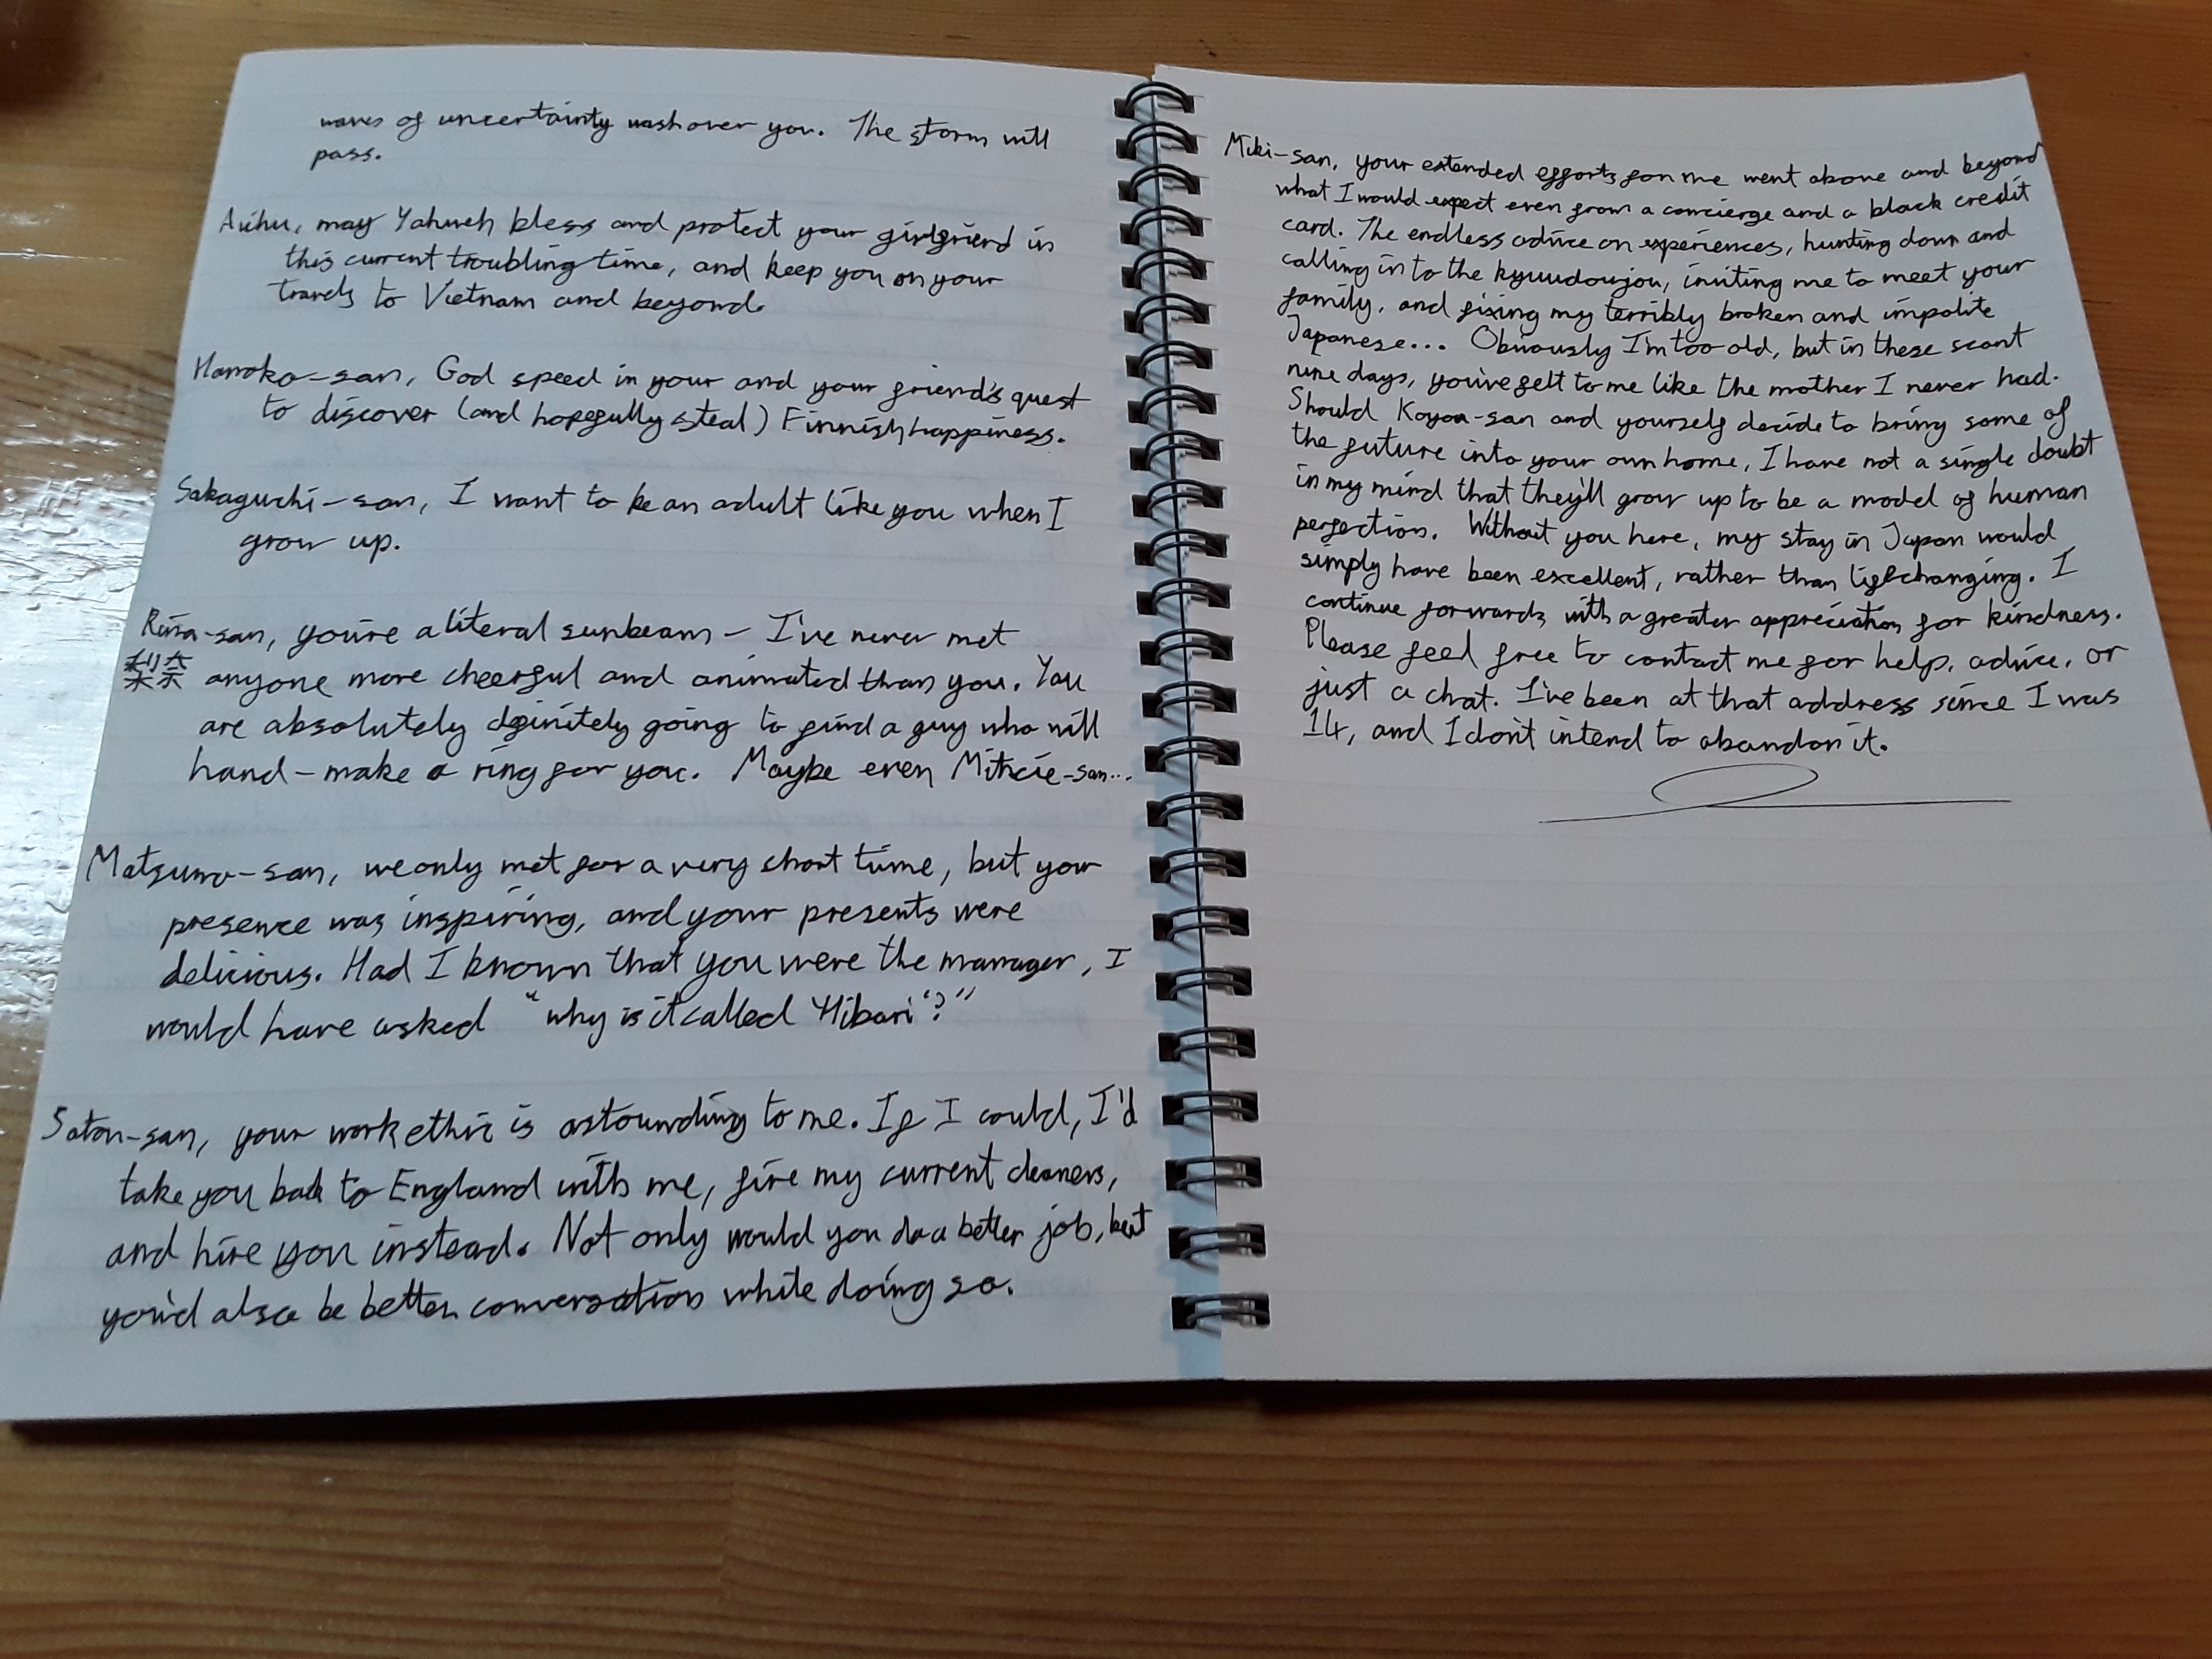 waves of uncertainty wash over you. The storm will
pass.
may Yahweh bless and protect your girlfriend in
this current troubling time, and keep you on your
travels to Vietnam and beyond.
Hanoko-san, God speed in your and your friend's quest
to discover (and hopefully steal) Finnish happiness.
Sakaguchi-san, I want to be an adult like you when I
grow up.
Rina-san, you're a literal sunbeam - I've never met
梨奈 anyone more cheerful and animated than you. You
are absolutely definitely going to find a guy who will
hand-make a ring for you. Maybe even
Matsuno-san, we only met for a very short time, but your
presence was inspiring, and your presents were
delicious. Had I known that you were the manager, I
would have asked "why is it called 'Hibari'?"
Satou-san, your work ethic is astounding to me. If I could, I'd
take you back to England with me, fire my current cleaners,
and hire you instead. Not only would you do a better job, but
you'd also be better conversation while doing so.
Miki-san, your extended efforts for me went above and beyond
what I would expect even from a concierge and a black credit
card. The endless advice on experiences, hunting down and
calling in to the kyuudoujou, inviting me to meet your
family, and fixing my terribly broken and impolite
Japanese... Obviously I'm too old, but in these scant
nine days, you've felt to me like the mother I never had.
Should and yourself decide to bring some of
the future into your own home, I have not a single doubt
in my mind that they'll grow up to be a model of human
perfection. Without you here, my stay in Japan would
simply have been excellent, rather than lifechanging. I
continue forwards with a greater appreciation for kindness.
Please feel free to contact me for help, advice, or
just a chat. I've been at that address since I was
14, and I don't intend to abandon it.